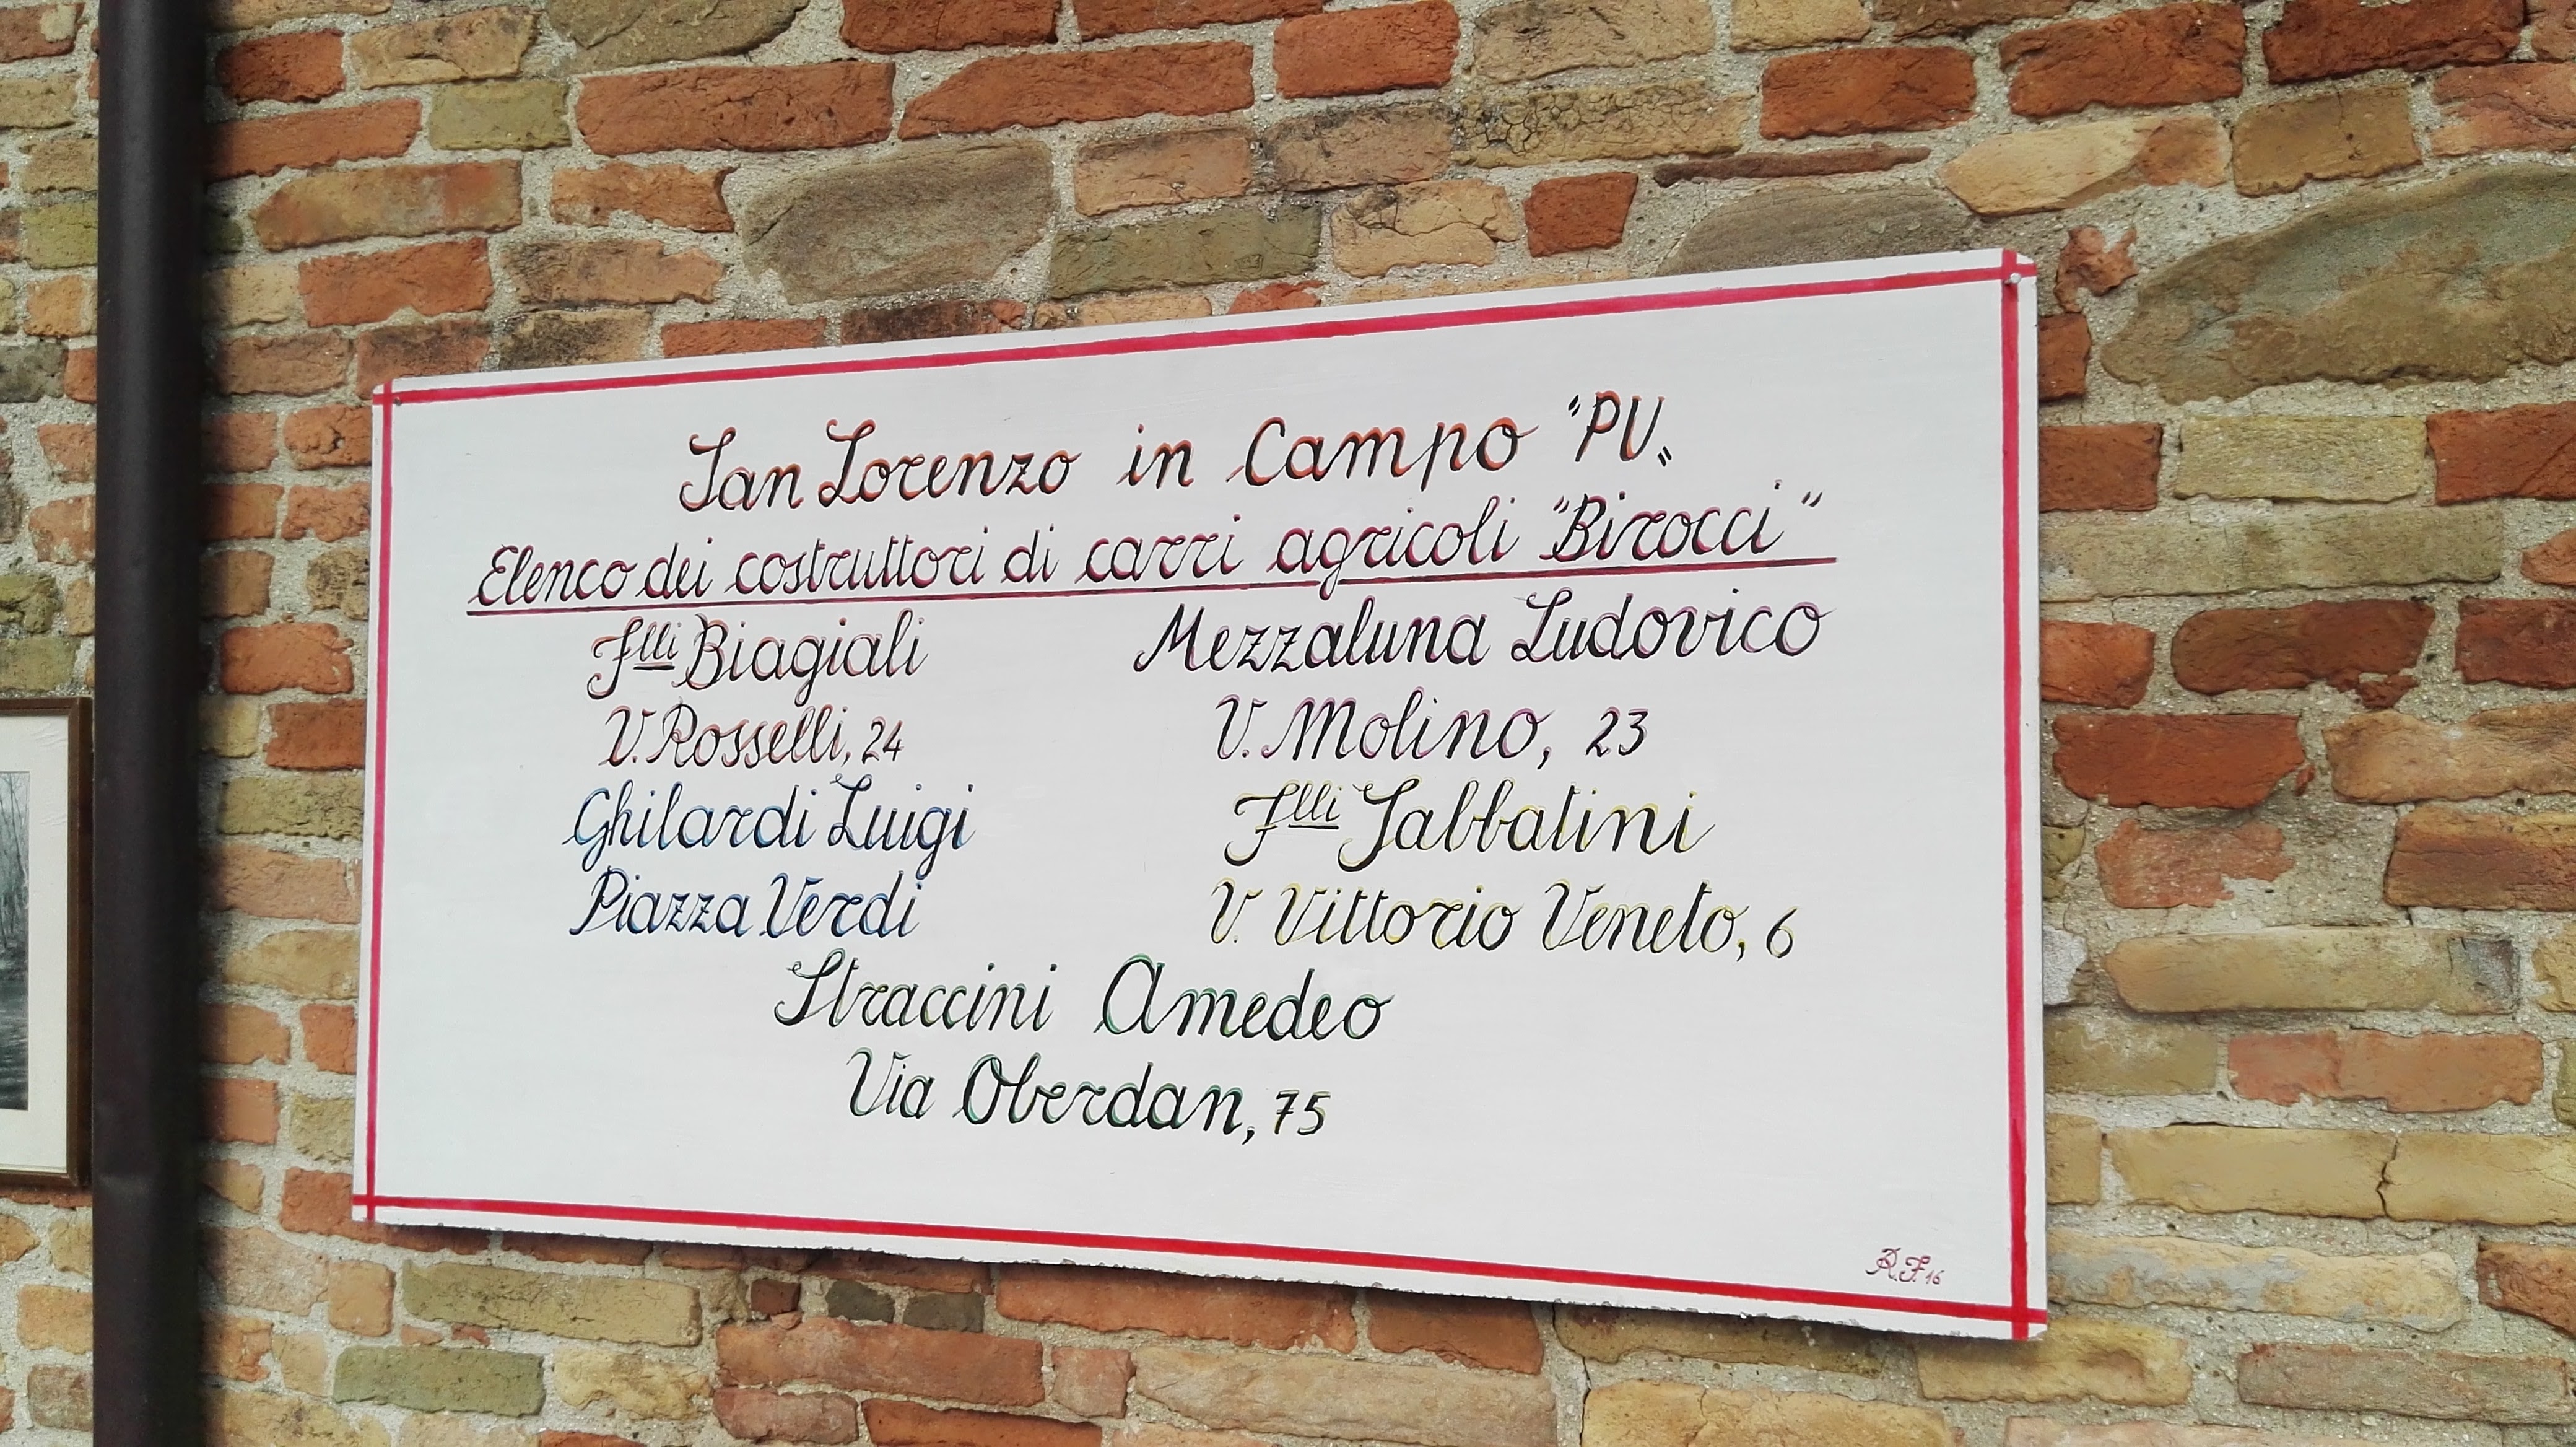 San Lorenzo in Campo "PU"
Elenco dei costruttori di carri agricoli "Birocci"
F.lli Biagiali
V. Rosselli, 24
Ghilardi Luigi
Piazza Verdi
Mezzaluna Ludovico
V. Molino, 23
F.lli Sabbatini
V. Vittorio Veneto, 6
Straccini Amedeo
Via Oberdan, 75
R.F. 16